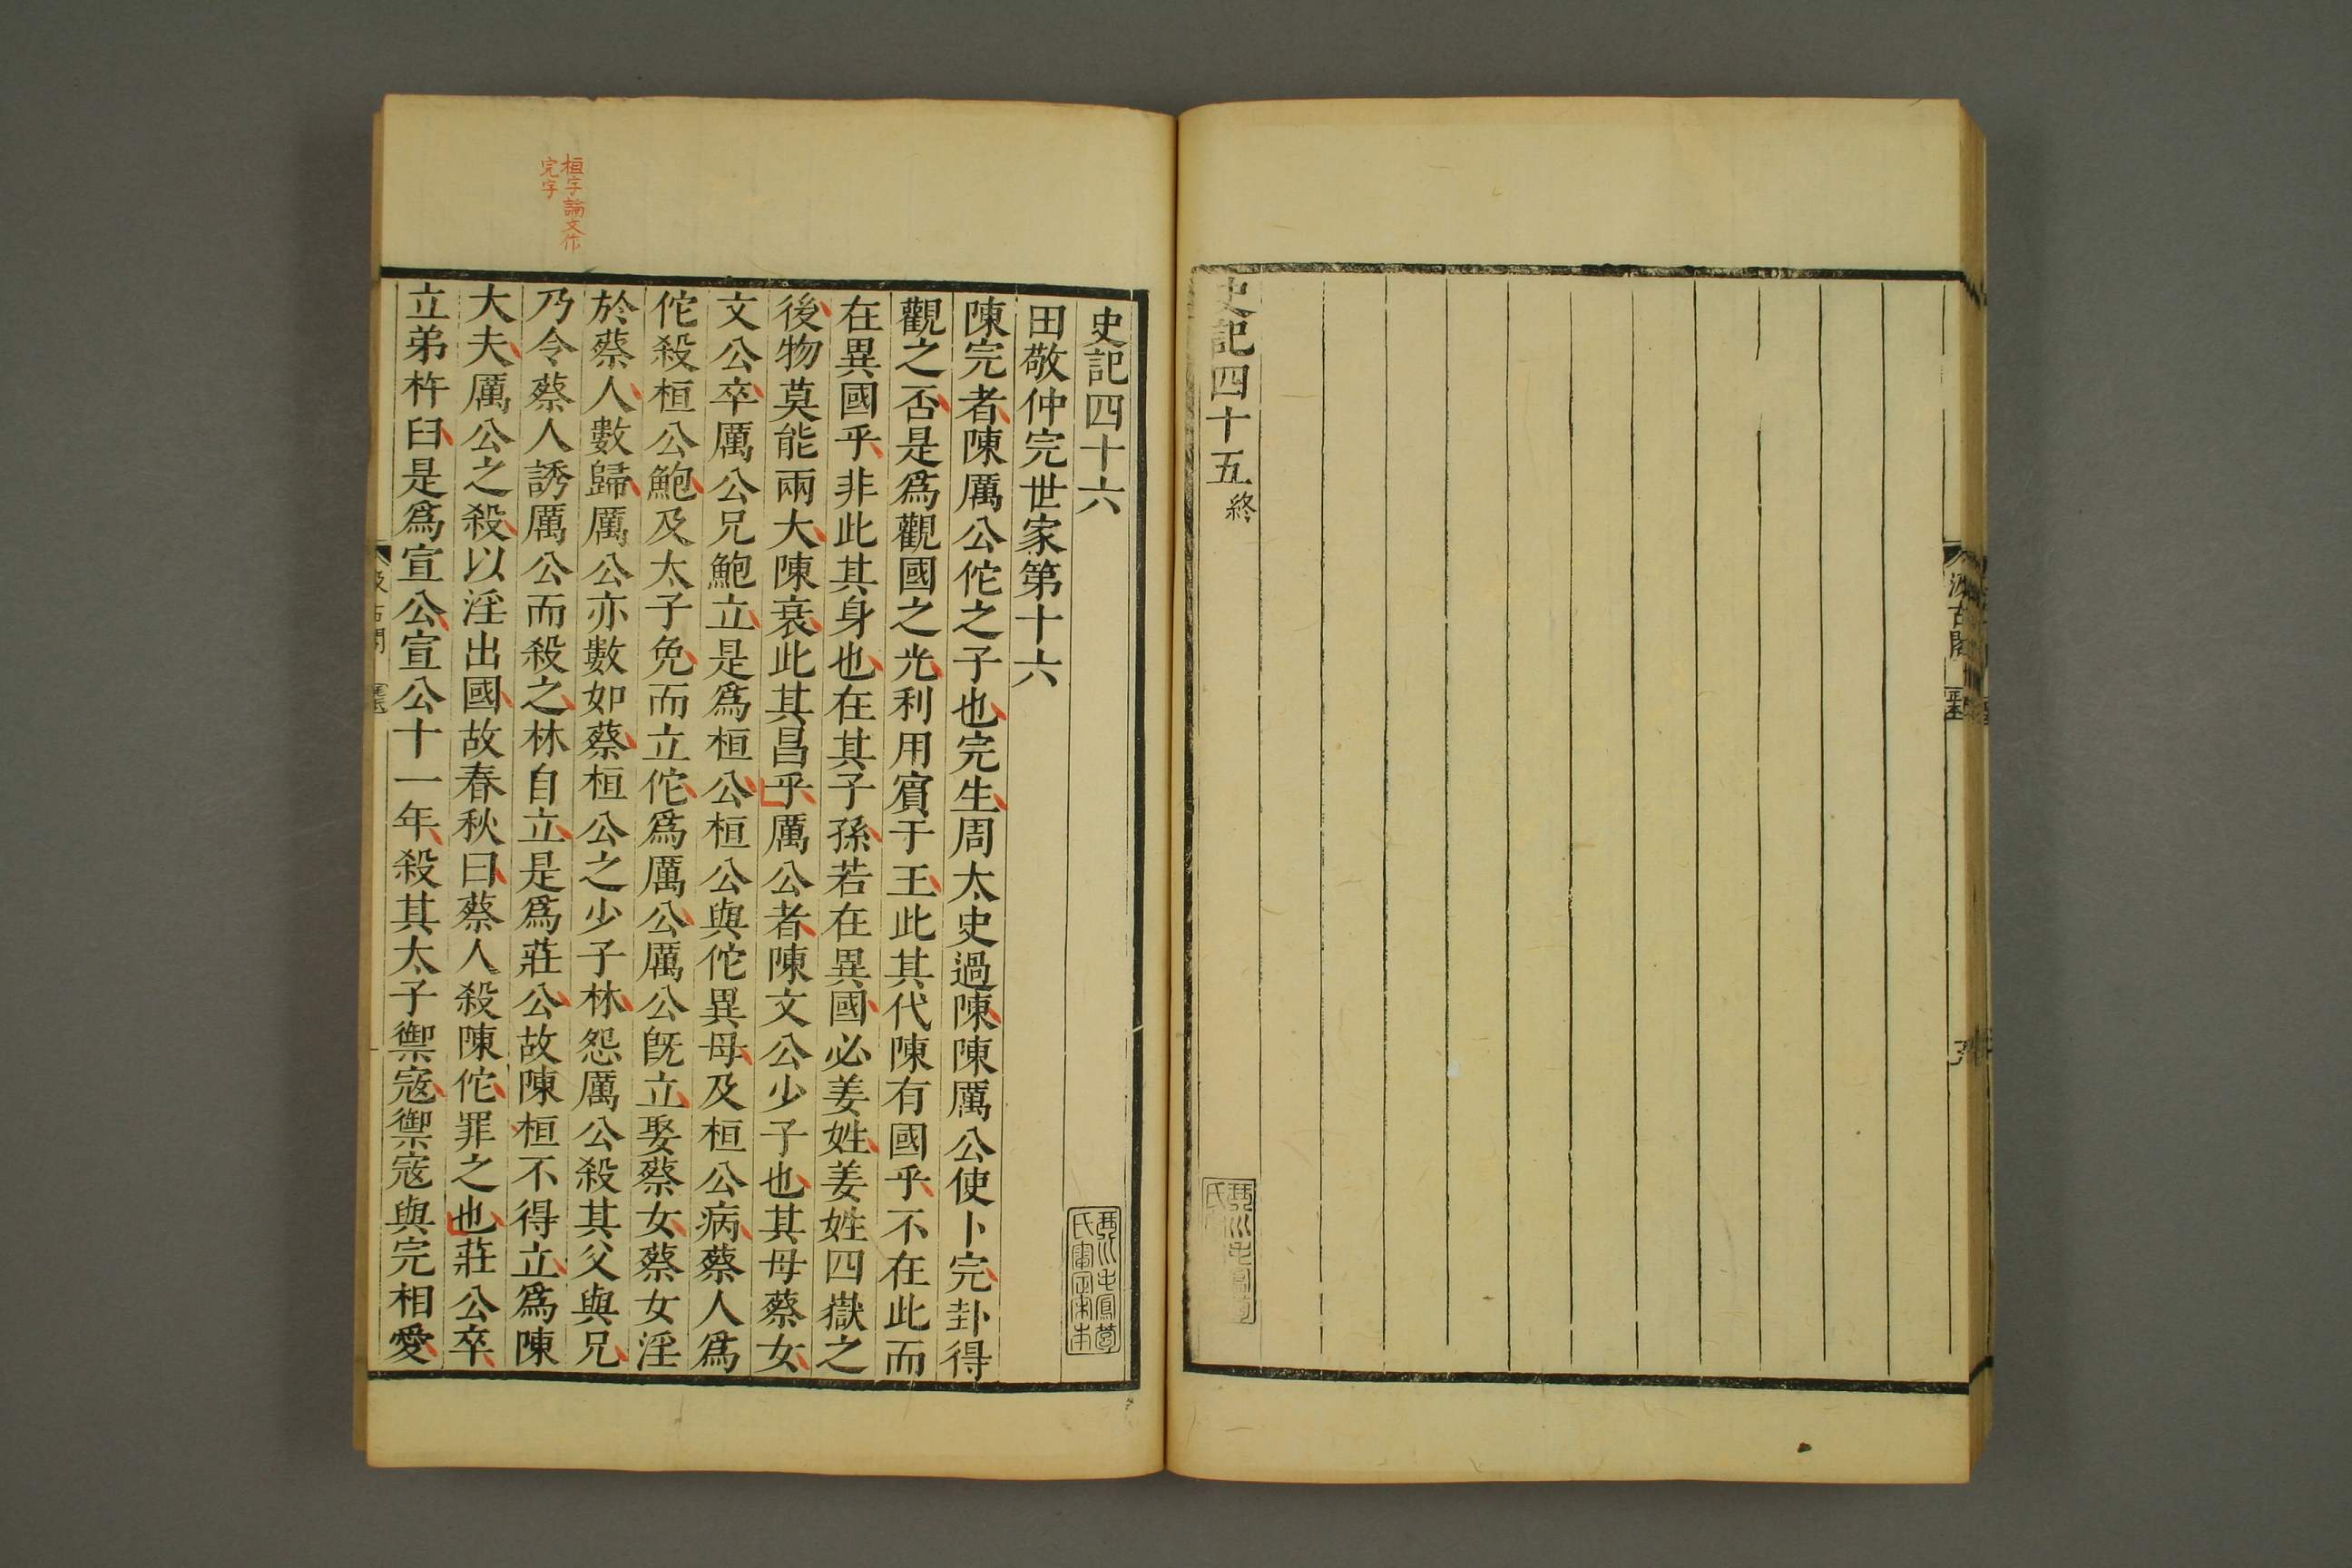 史記四十五終
汲古閣
桓字論文作
完字
史記四十六
田敬仲完世家第十六
陳完者陳厲公佗之子也完生周太史過陳陳厲公使卜完卦得
觀之否是爲觀國之光利用賔于王此其代陳有國乎不在此而
在異國乎非此其身也在其子孫若在異國必姜姓姜姓四嶽之
後物莫能兩大陳衰此其昌乎厲公者陳文公少子也其母蔡女
文公卒厲公兄鮑立是爲桓公桓公與佗異母及桓公病蔡人爲
佗殺桓公鮑及太子免而立佗爲厲公厲公旣立娶蔡女蔡女淫
於蔡人數歸厲公亦數如蔡桓公之少子林怨厲公殺其父與兄
乃令蔡人誘厲公而殺之林自立是爲莊公故陳桓不得立爲陳
大夫厲公之殺以淫出國故春秋曰蔡人殺陳佗罪之也莊公卒
立弟杵臼是爲宣公宣公十一年殺其太子禦寇禦寇與完相愛